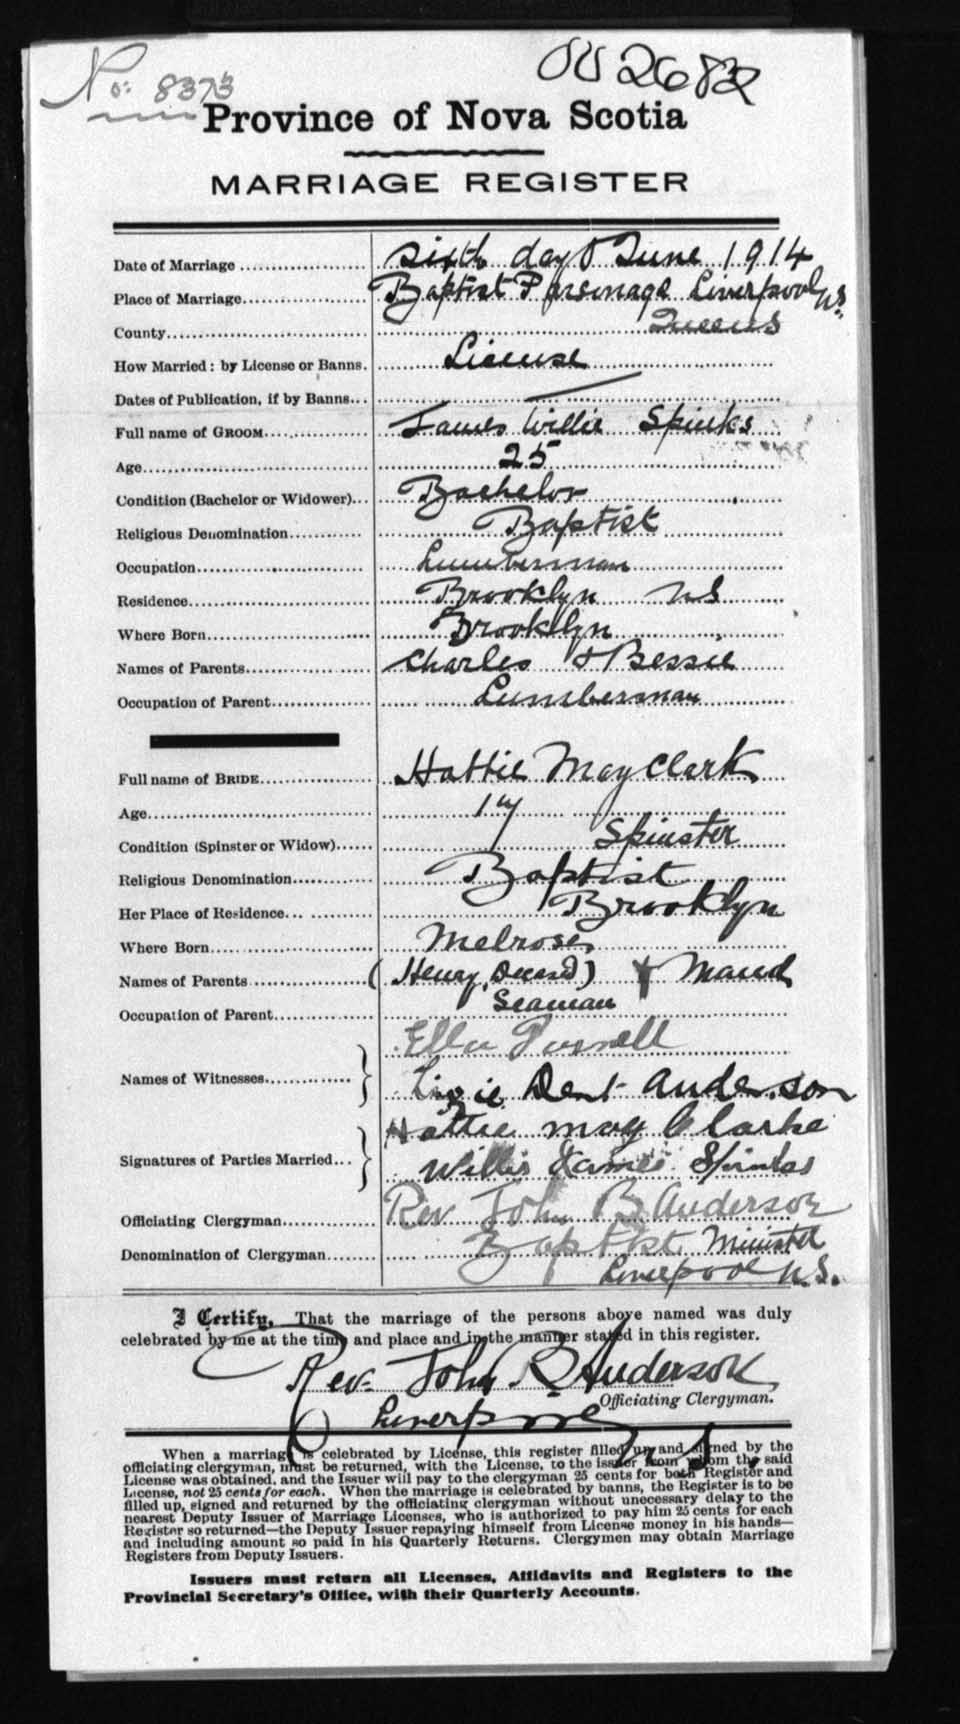 No. 8373
OU 2682
Province of Nova Scotia
MARRIAGE REGISTER
Date of Marriage ............ Sixth day June 1914
Place of Marriage............ Baptist Parsonage Liverpool NS.
County............ Queens
How Married: by License or Banns. License
Dates of Publication, if by Banns... —
Full name of GROOM............ James Willie Spinks
Age............ 25
Condition (Bachelor or Widower)... Bachelor
Religious Denomination............ Baptist
Occupation............ Lumberman
Residence............ Brooklyn NS
Where Born............ Brooklyn
Names of Parents............ Charles & Bessie
Occupation of Parent............ Lumberman
Full name of BRIDE............ Hattie May Clark
Age............ 17
Condition (Spinster or Widow)...... Spinster
Religious Denomination............ Baptist
Her Place of Residence... ............ Brooklyn
Where Born............ Melrose
Names of Parents............ (Henry, Deceased) & Maud
Occupation of Parent............ Seaman
Ella
Names of Witnesses............ Lizzie Dent Anderson
Hattie may Clarke
Signatures of Parties Married... Willis James Spinks
Officiating Clergyman............ Rev John B Anderson
Denomination of Clergyman........ Baptist Minister
Liverpool N.S.
I Certify, That the marriage of the persons above named was duly
celebrated by me at the time and place and in the manner stated in this register.
Rev. John B Anderson
Officiating Clergyman.
Liverpool
N.S.
When a marriage is celebrated by License, this register filled up and signed by the
officiating clergyman, must be returned, with the License, to the issuer from whom the said
License was obtained, and the Issuer will pay to the clergyman 25 cents for both Register and
License, not 25 cents for each. When the marriage is celebrated by banns, the Register is to be
filled up, signed and returned by the officiating clergyman without unecessary delay to the
nearest Deputy Issuer of Marriage Licenses, who is authorized to pay him 25 cents for each
Register so returned—the Deputy Issuer repaying himself from License money in his hands—
and including amount so paid in his Quarterly Returns. Clergymen may obtain Marriage
Registers from Deputy Issuers.
Issuers must return all Licenses, Affidavits and Registers to the
Provincial Secretary's Office, with their Quarterly Accounts.